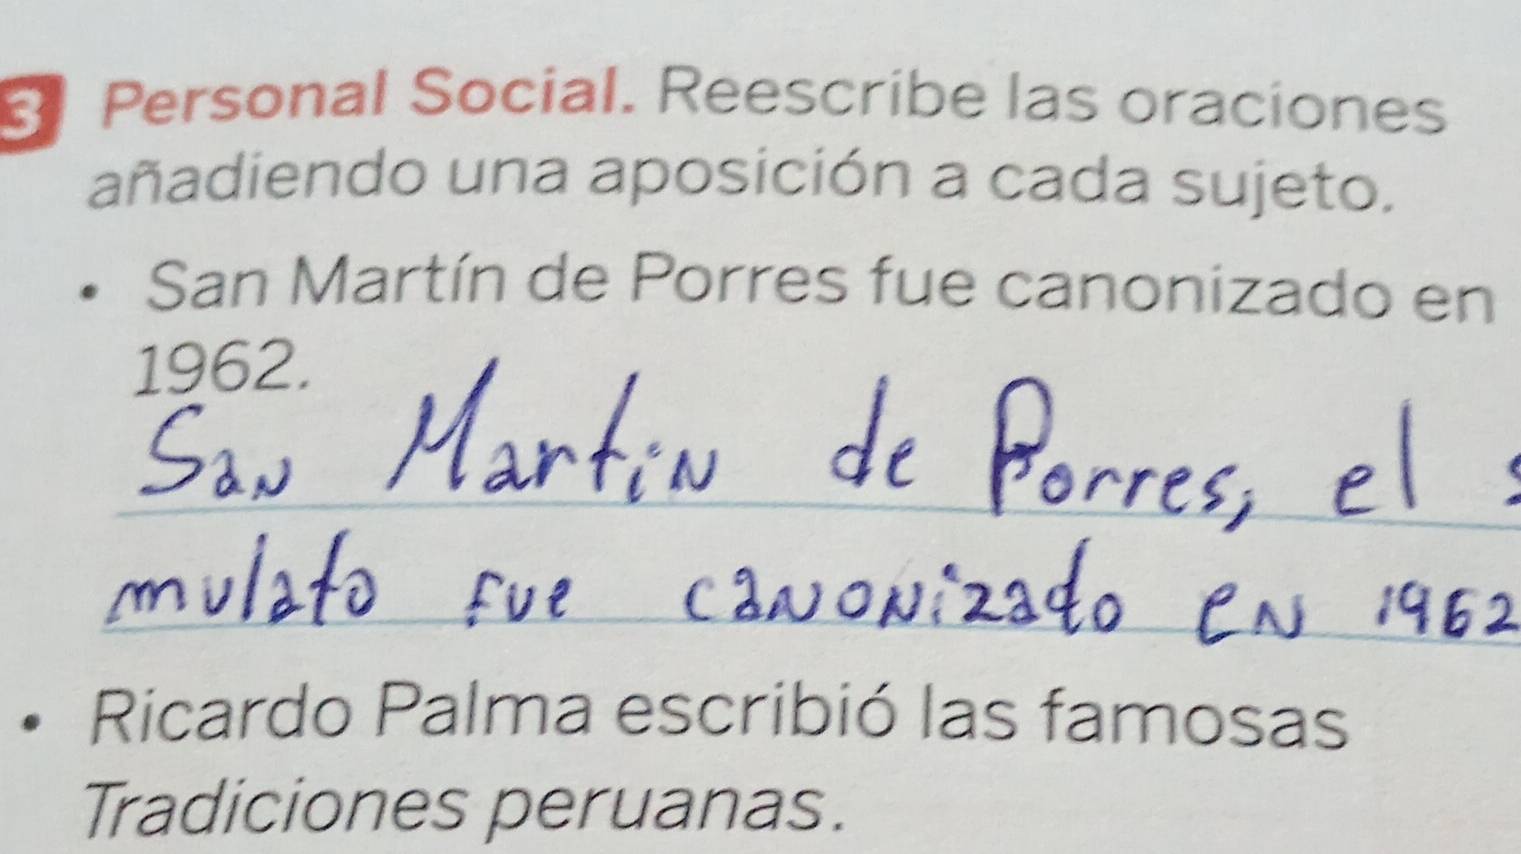 3 Personal Social. Reescribe las oraciones
añadiendo una aposición a cada sujeto.
• San Martín de Porres fue canonizado en
1962.
San Martin de Porres, el
mulato fue canonizado en 1962
• Ricardo Palma escribió las famosas
Tradiciones peruanas.